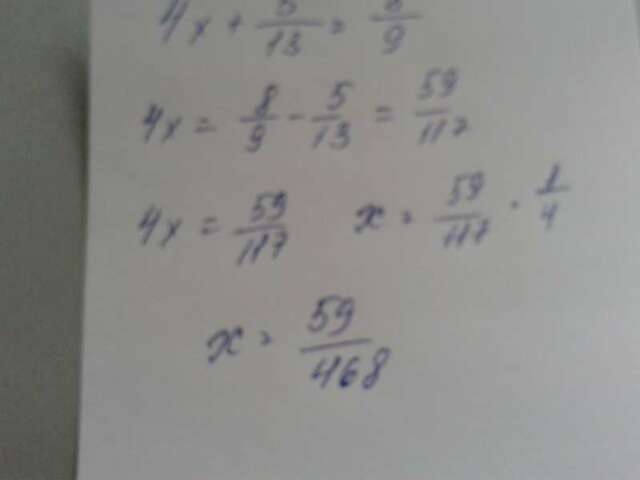 4x + 5/13 = 8/9
4x = 8/9 - 5/13 = 59/117
4x = 59/117 x = 59/117 · 1/4
x = 59/468